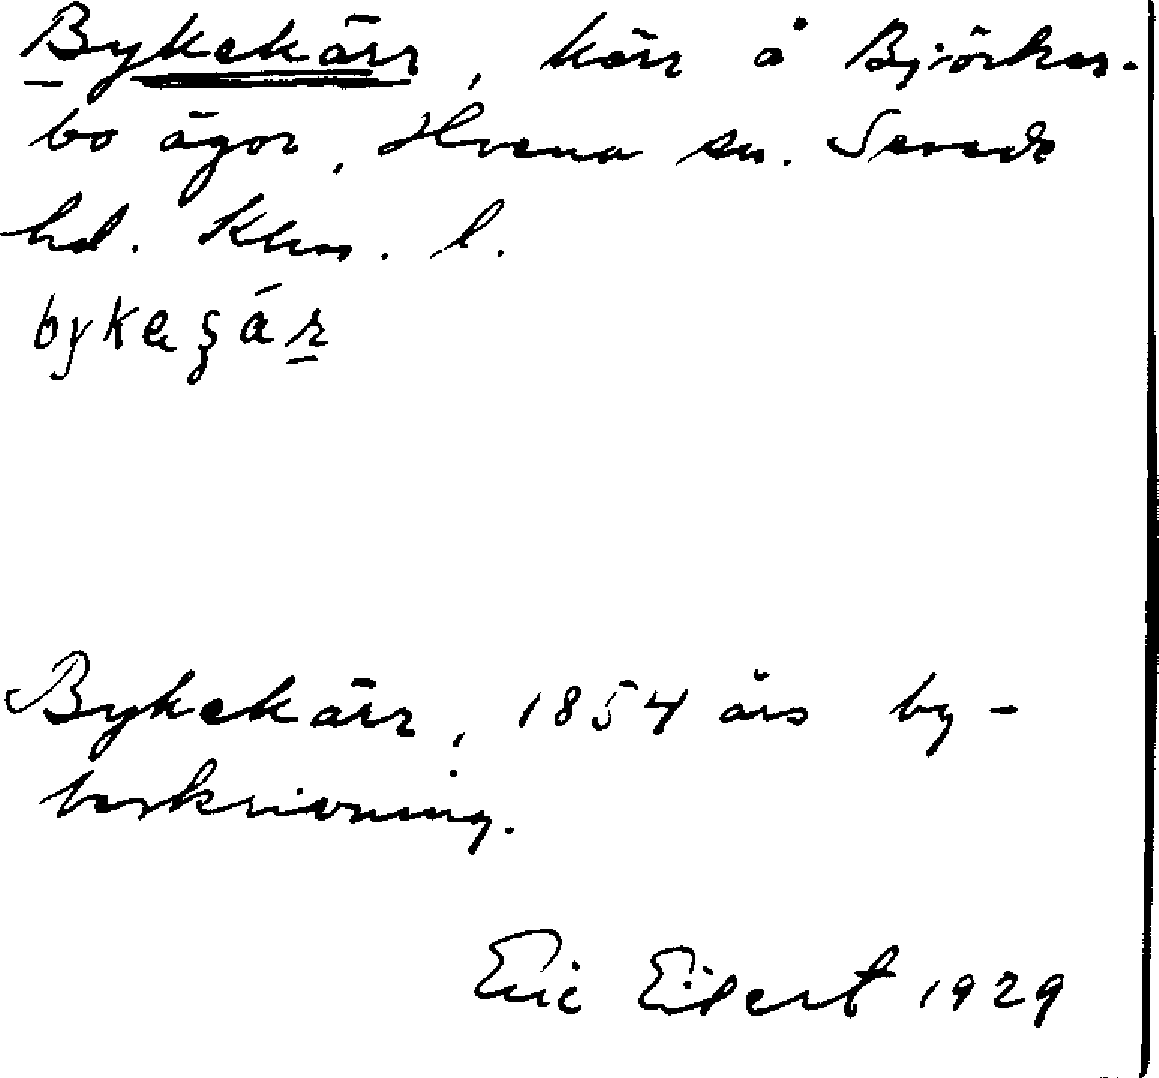 Bykekärr, kärr å Björkes-
bo ägor, Hvena sn. Sevede
hd. Klm. l.
Bykekärr, 1854 års by-
beskrivning.
Eric Eilert 1929